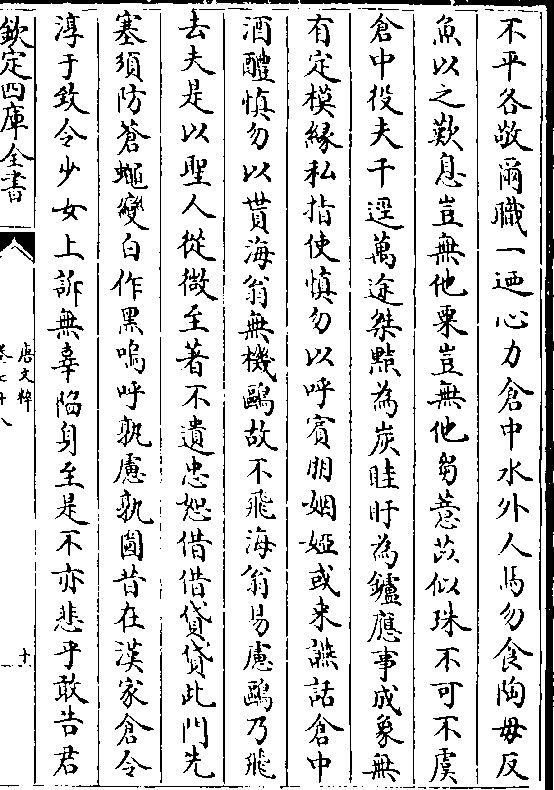 不平各敬爾職一迺心力倉中水外人馬勿食陶毋反
魚以之歎息豈無他粟豈無他芻薏苡似珠不可不虞
倉中役夫千逕萬途桀黠為炭睢盱為鑪應事成象無
有定模緣私指使慎勿以呼賓朋姻婭或来讌話倉中
酒醴慎勿以貰海翁無機鷗故不飛海翁易慮鷗乃飛
去夫是以聖人從微至著不遺忠恕借借貸貸此門先
塞須防蒼蠅變白作黑嗚呼孰慮孰圖昔在漢家倉令
淳于致令少女上訴無辜陷身至是不亦悲乎敢告君
欽定四庫全書
唐文粹
卷七十八
十一